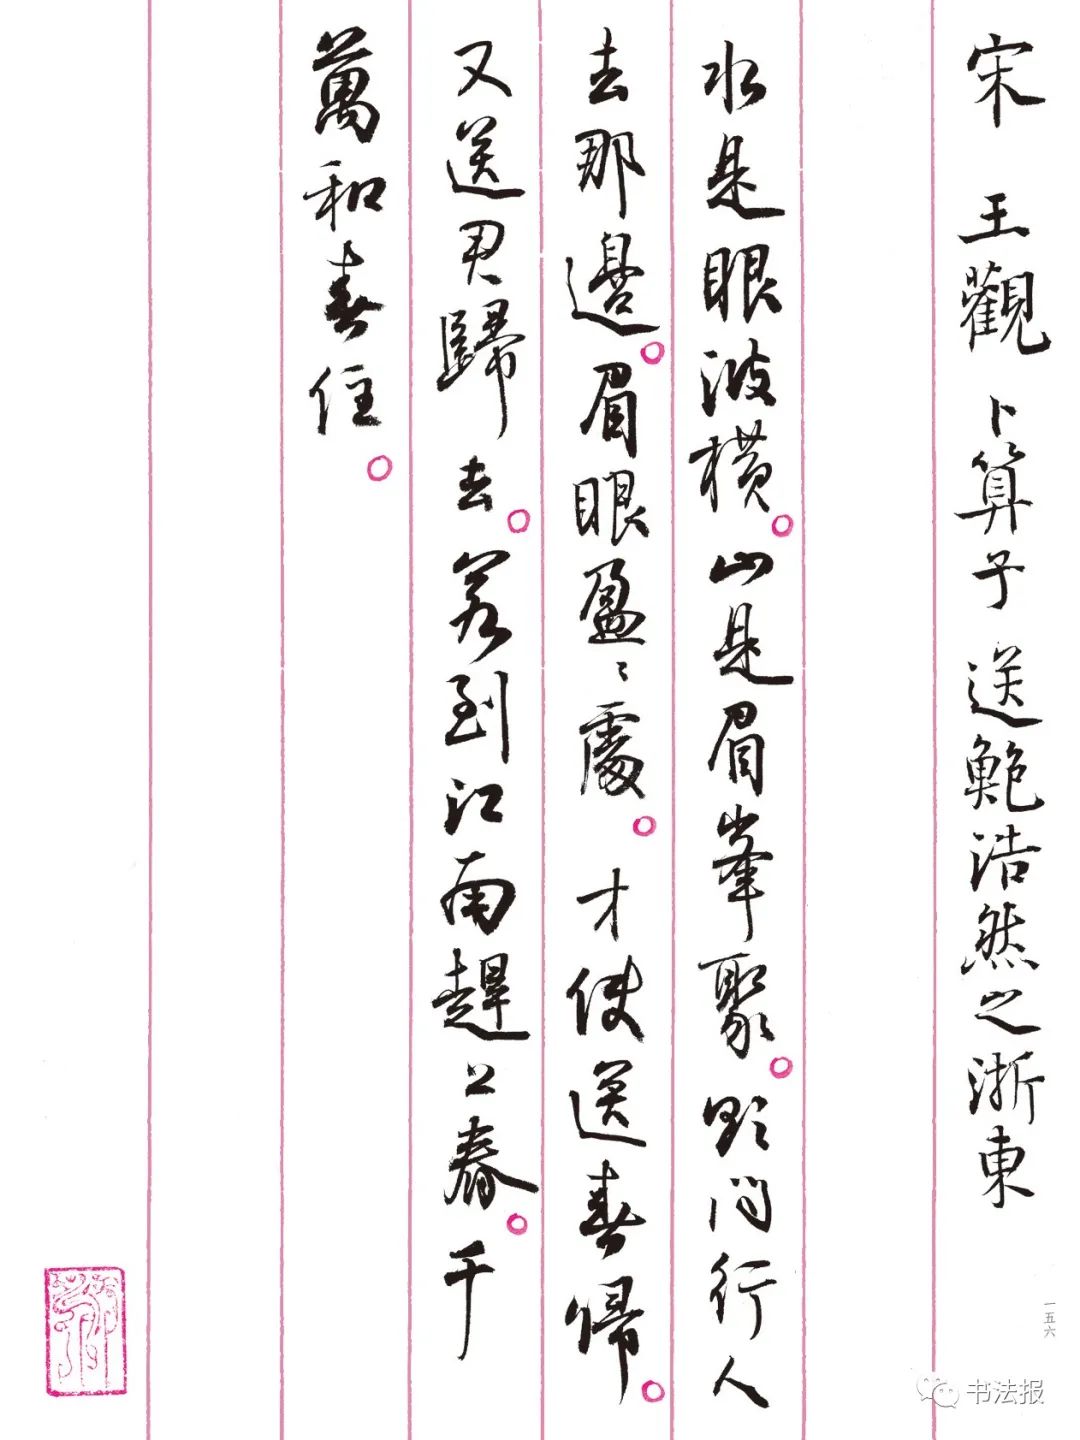 宋 王觀 卜算子 送鮑浩然之浙東
水是眼波橫。山是眉峯聚。欲問行人
去那邊。眉眼盈〻處。才使送春歸。
又送君歸去。若到江南趕上春。千
萬和春住。
一五六
书法报